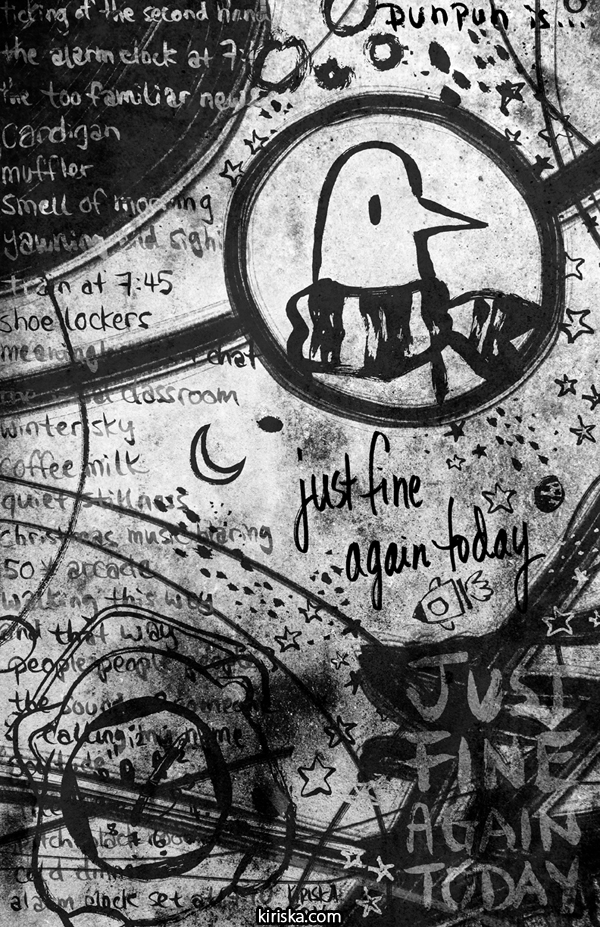 ticking of the second hand
the alarm clock at 7:
the too familiar news
cardigan
muffler
smell of morning
yawning and sigh
train at 7:45
shoe lockers
chat
classroom
winter sky
coffee milk
quiet stillness
christmas music blaring
50 arcade
walking this way
and that way
people people people
the sound of someone
calling my name
cold
alarm clock set at
PunPun is...
just fine
again today
JUST
FINE
AGAIN
TODAY
KIRISKA
kiriska.com